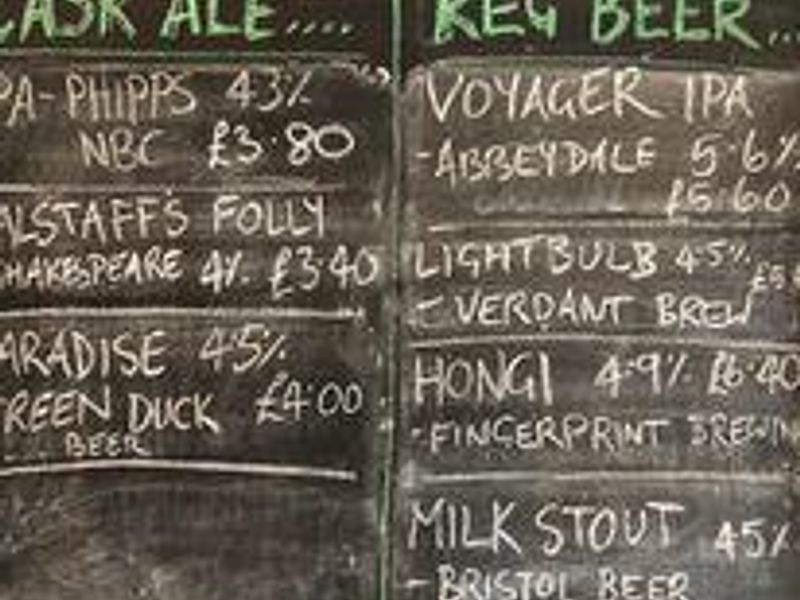 CASK ALE....
PA-PHIPPS 4.3%
NBC £3.80
ALSTAFF'S FOLLY
SHAKESPEARE 4% £3.40
ARADISE 4.5%
GREEN DUCK £4.00
BEER
KEG BEER...
VOYAGER IPA
-ABBEYDALE 5.6%
£5.60
LIGHTBULB 4.5%
- VERDANT BREW
HONGI 4.9% £6.40
-FINGERPRINT BREWIN
MILK STOUT 4.5%
- BRISTOL BEER